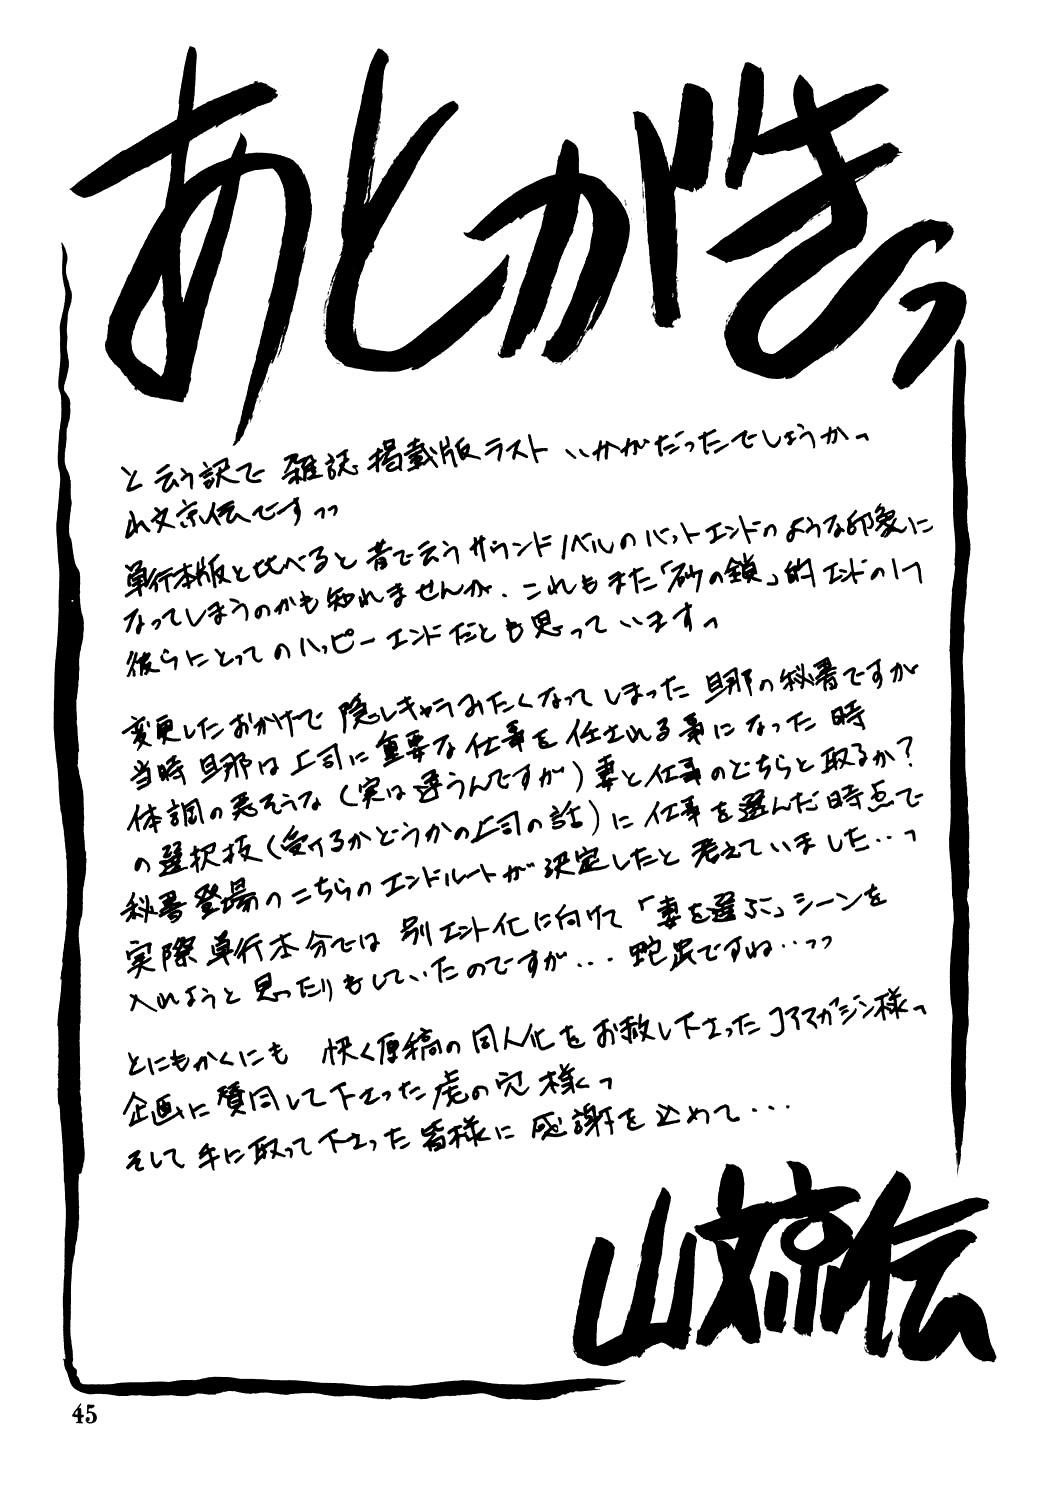 あとがきっ
と云う訳で 雑誌掲載版ラスト いかがだったでしょうかっ
山文京伝ですっっ
単行本版と比べると昔で云うサウンドノベルのバットエンドのような印象に
なってしまうのかも知れませんが、これもまた「砂の鎖」的エンドの1つ
彼らにとってのハッピーエンドだとも思っていますっ
変更したおかげで 隠しキャラみたくなってしまった 旦那の秘書ですが
当時旦那は上司に重要な仕事を任される事になった時
体調の悪そうな(実は違うんですが)妻と仕事のどちらと取るか?
の選択枝(受けるかどうかの上司の話)に仕事を選んだ時点で
秘書登場のこちらのエンドルートが決定したと考えていました‥っ
実際単行本分では 別エンド化に向けて「妻を選ぶ」シーンを
入れようと思ったりもしていたのですが... 蛇足ですね‥っっ
とにもかくにも 快く原稿の同人化をお赦し下さったコアマガジン様っ
企画に賛同して下さった虎の穴様くっ
そして手に取って下さった皆様に 感謝を込めて...
山文京伝
45